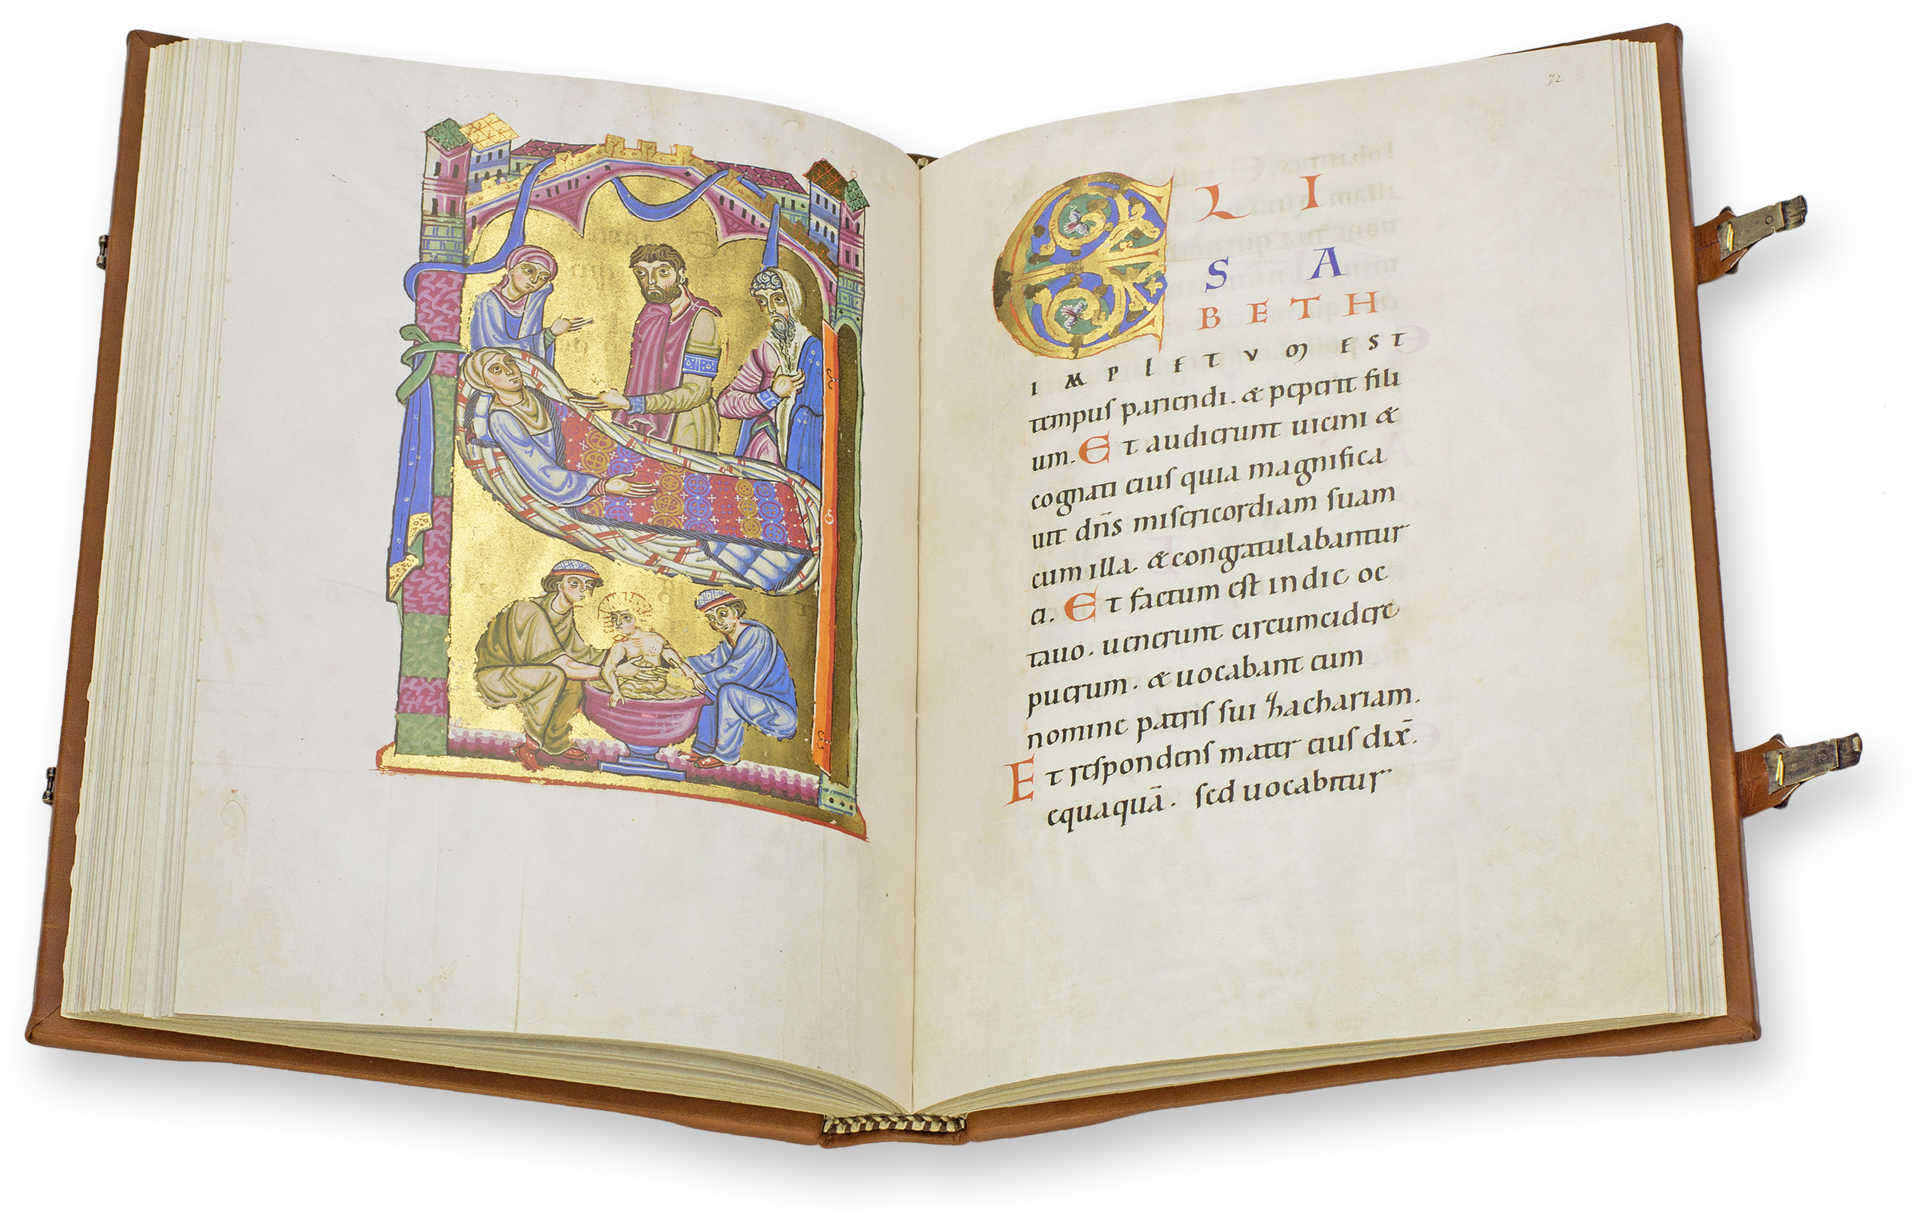 72
ELI
SA
BETH
IMPLETUM EST
tempus pariendi. & peperit fili
um. Et audierunt uicini &
cognati eius quia magnifica
uit dn̄s misericordiam suam
cum illa. & congratulabantur
ei. Et factum est in die oc
tauo. uenerunt circumcidere
puerum. & uocabant eum
nomine patris sui Zachariam.
Et respondens mater eius dix̄.
equaquā. sed uocabitur